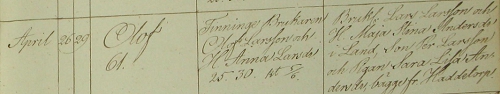 April 26 29 Olof 61.
Tinninge Brukaren
Olof Larsson och
H. Anna Larsdr
25. 30. 1st 5/6.
Brukf. Lars Larsson och
H. Maja Stina Andersdr
i Land, Son Per Larsson
och Pigan Sara Lisa An
dersdr, bägge fr. Haddetorp